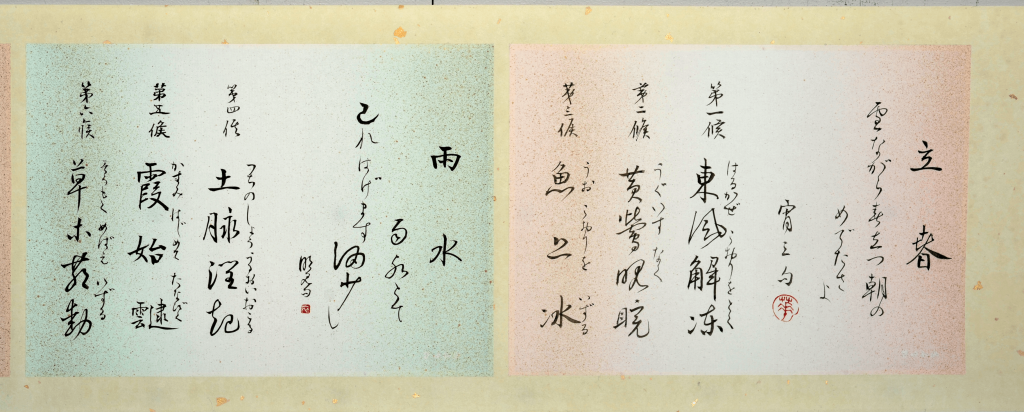 立春
雪ながら春立つ朝の
めでたさよ
第一候
はるかぜ こほりをとく
東風解凍
第二候
うぐいす なく
黄鶯睍睆
第三候
うお こほりを いずる
魚上冰
雨水
雨水とて
己れはげます酒少し
第四候
つちのしょう うるおいおこる
土脉潤起
第五候
かすみ はじめて たなびく
霞始靆
第六候
そうもく めばえ いずる
草木萌動